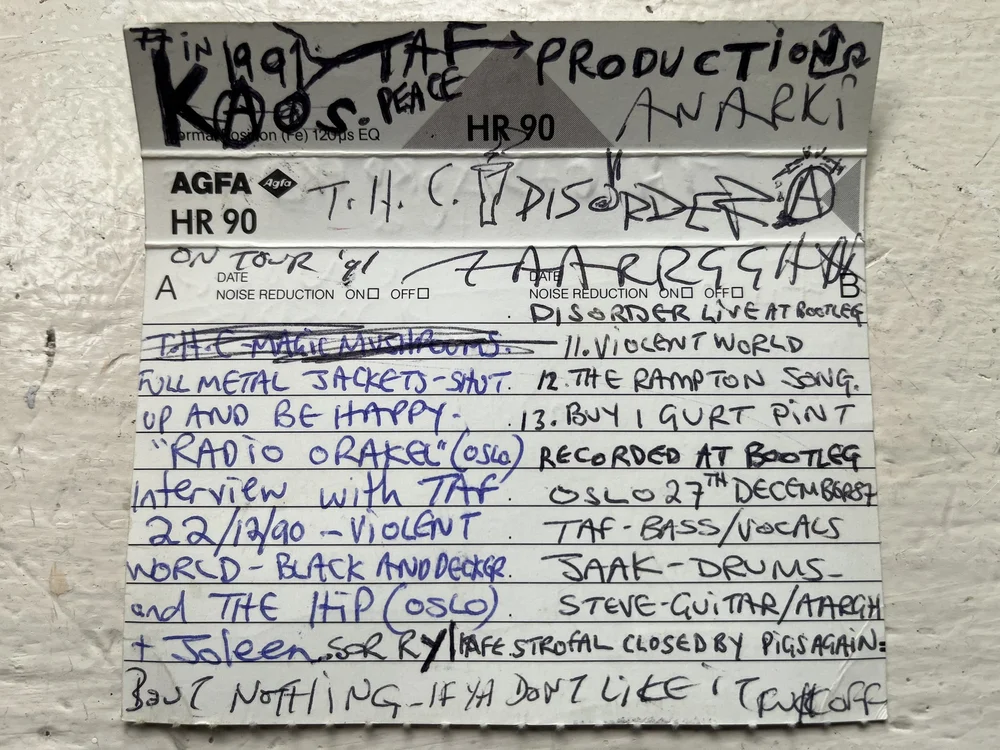 IN 1991 TAF → PRODUCTIONS
KAOS. PEACE ANARKi
Normal Position (Fe) 120µs EQ HR 90
AGFA Agfa T.H.C. DISORDER A
HR 90
ON TOUR '91 AARRGGH
A DATE DATE B
NOISE REDUCTION ON OFF NOISE REDUCTION ON OFF
DISORDER LIVE AT BOOTLEG
T.H.C-MAGIC MUSHROOMS. 11. VIOLENT WORLD
FULL METAL JACKETS-SHUT. 12. THE RAMPTON SONG.
UP AND BE HAPPY. 13. BUY I GURT PINT
"RADIO ORAKEL" (OSLO) RECORDED AT BOOTLEG
Interview with TAF. OSLO 27TH DECEMBER 87
22/12/90 - VIOLENT TAF-BASS/VOCALS
WORLD-BLACK AND DECKER. JAAK-DRUMS-
and THE HIP (OSLO). STEVE-GUITAR/AARGH
+ Joleen. SORRY/KAFE STROFAL CLOSED BY PIGS AGAIN=
BOUT NOTHING-IF YA DONT LIKE IT FUCK OFF